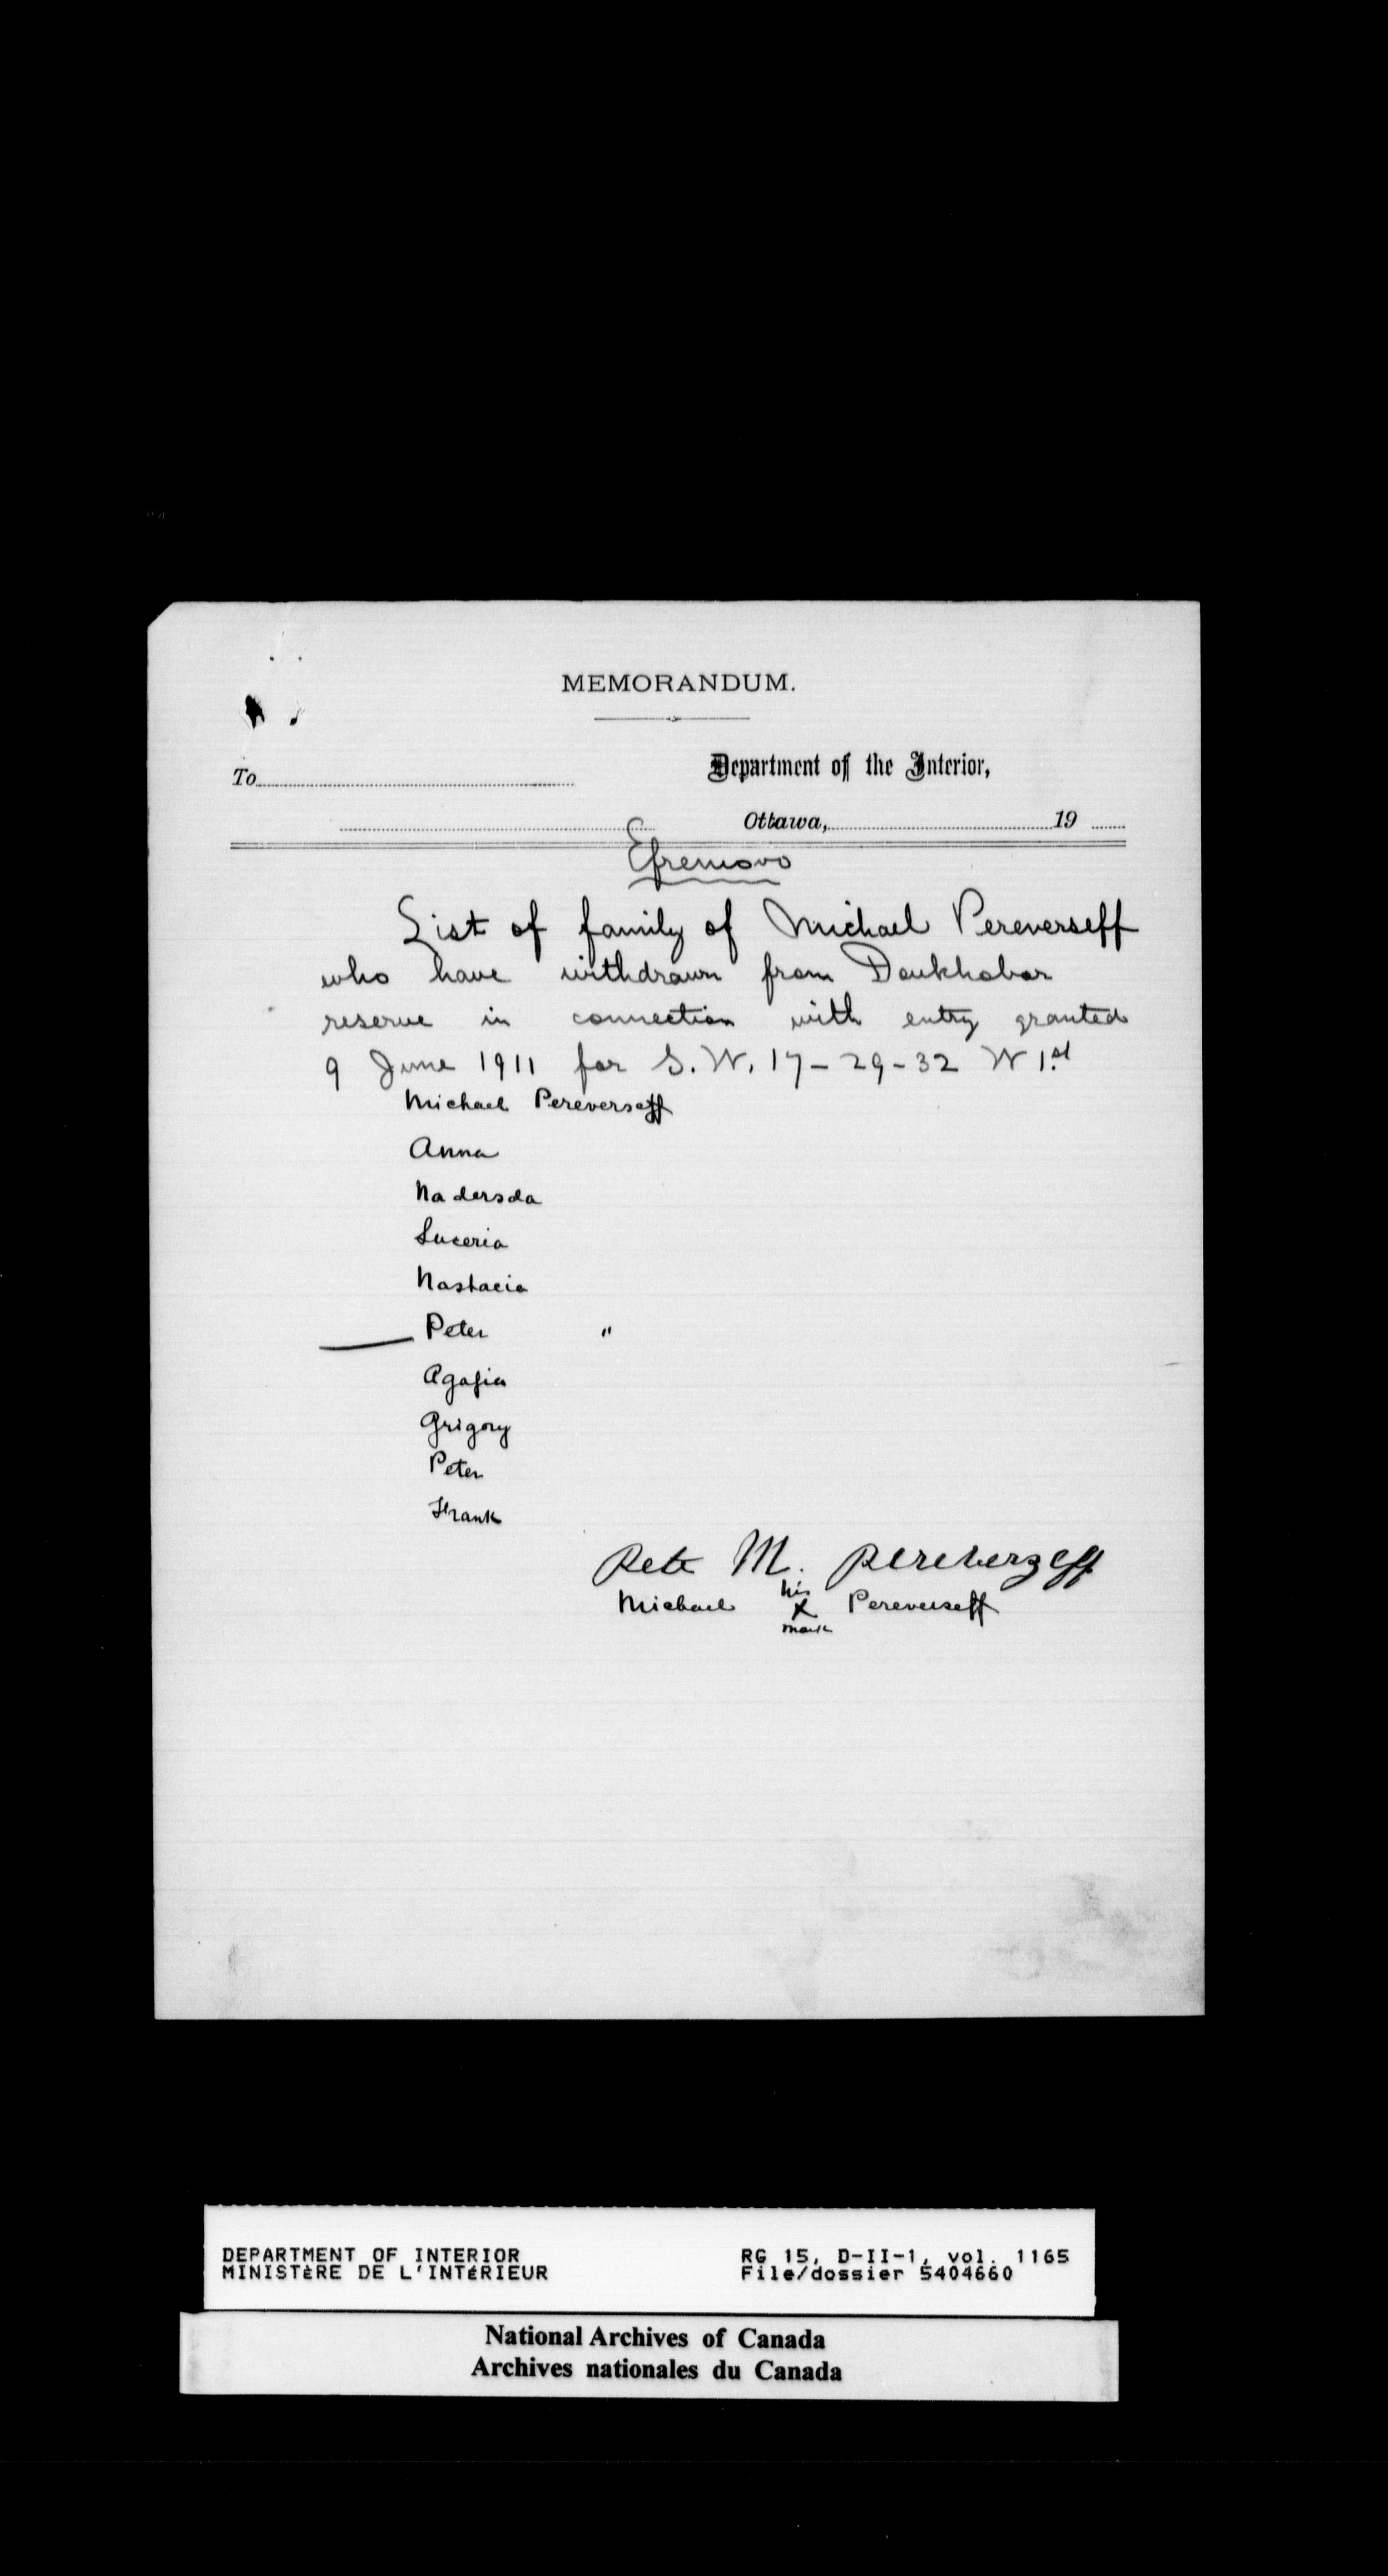 MEMORANDUM.
To
Department of the Interior,
Ottawa, 19
Efremovo
List of family of Michael Pereverseff
who have withdrawn from Doukhobor
reserve in connection with entry granted
9 June 1911 for S.W. 17-29-32 W 1.st
Michael Pereverseff
Anna
Nadersda
Luceria
Nastacia
Peter "
Agafia
Grigory
Peter
Frank
Pete M. Pereverzeff
his
Michael X Pereverseff
mark
DEPARTMENT OF INTERIOR
MINISTÈRE DE L'INTÉRIEUR
RG 15, D-II-1, vol. 1165
File/dossier 5404660
National Archives of Canada
Archives nationales du Canada